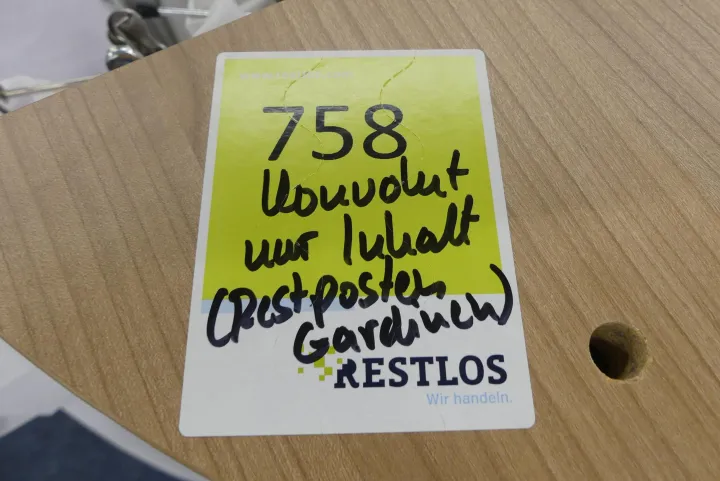 758
Konvolut
nur Inhalt
(Restposten
Gardinen)
RESTLOS
Wir handeln.